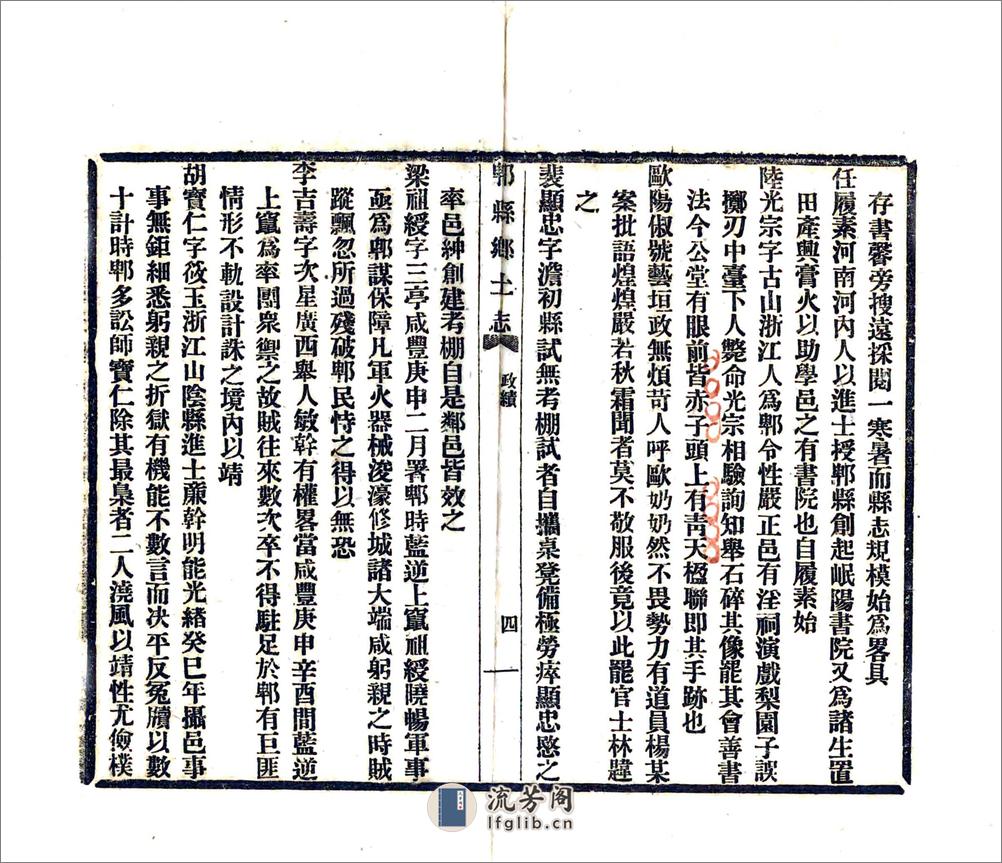 存書馨旁搜遠採閱一寒暑而縣志規模始爲畧具
任履素河南河內人以進士授郫縣創起岷陽書院又爲諸生置
田產興膏火以助學邑之有書院也自履素始
陸光宗字古山浙江人爲郫令性嚴正邑有淫祠演戲梨園子誤
擲刃中臺下人斃命光宗相驗詢知舉石碎其像罷其會善書
法今公堂有眼前皆赤子頭上有靑天楹聯即其手跡也
歐陽俶號藝垣政無煩苛人呼歐奶奶然不畏勢力有道員楊某
案批語煌煌嚴若秋霜聞者莫不敬服後竟以此罷官士林韙
之
裴顯忠字澹初縣試無考棚試者自攜桌凳備極勞瘁顯忠愍之
郫縣鄉土志
政績
四
率邑紳創建考棚自是鄰邑皆效之
梁祖綬字三亭咸豐庚申二月署郫時藍逆上竄祖綬曉暢軍事
亟爲郫謀保障凡軍火器械浚濠修城諸大端咸躬親之時賊
蹤飄忽所過殘破郫民恃之得以無恐
李吉壽字次星廣西舉人敏幹有權畧當咸豐庚申辛酉間藍逆
上竄爲率團衆禦之故賊往來數次卒不得駐足於郫有巨匪
情形不軌設計誅之境內以靖
胡寶仁字筱玉浙江山陰縣進士廉幹明能光緖癸巳年攝邑事
事無鉅細悉躬親之折獄有機能不數言而决平反冤牘以數
十計時郫多訟師寶仁除其最梟者二人澆風以靖性尤儉樸
流芳阁
lfglib.cn